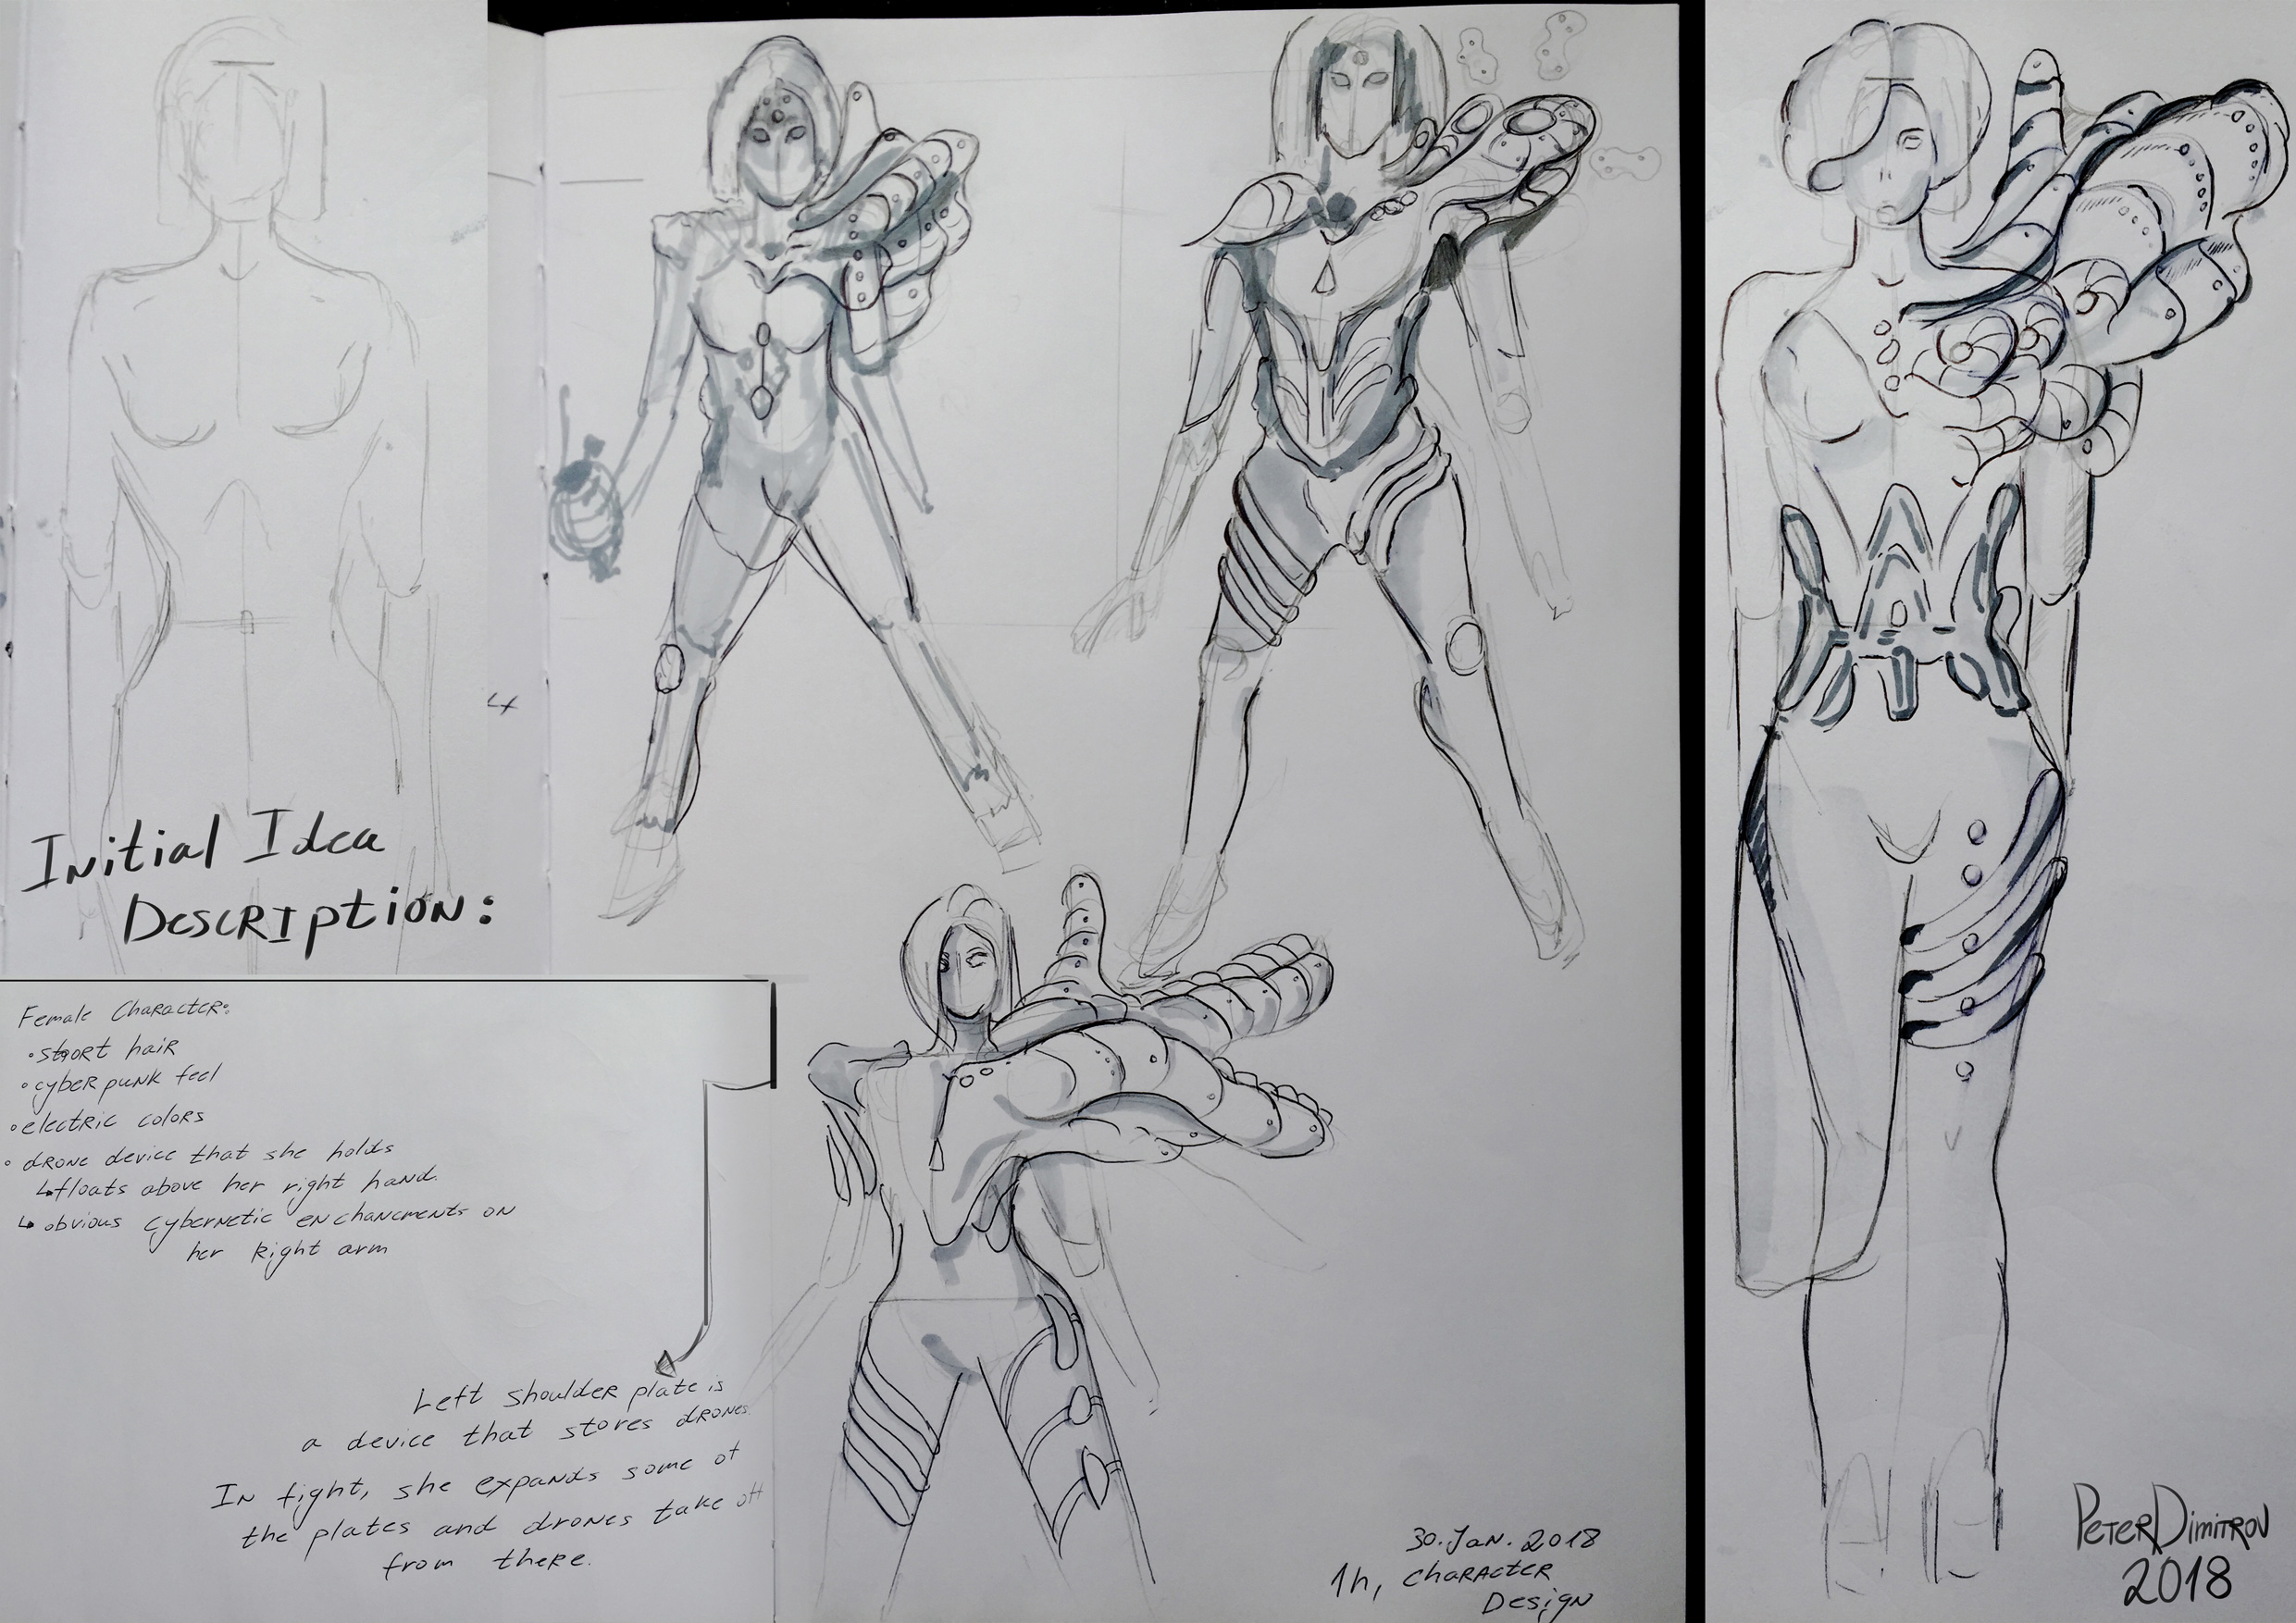 Initial Idea
Description:
Female Character:
•short hair
•cyberpunk feel
•electric colors
•drone device that she holds
↳floats above her right hand.
↳ obvious cybernetic enchancments on
her Right arm
Left shoulder plate is
a device that stores drones.
In fight, she expands some of
the plates and drones take off
from there.
30.Jan.2018
1h, Character
Design
PeterDimitrov
2018